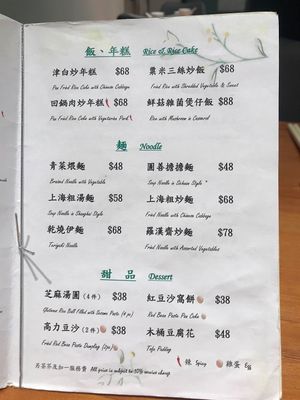 飯、年糕 Rice & Rice Cake
津白炒年糕 $68
Pan Fried Rice Cake with Chinese Cabbage
粟米三絲炒飯 $68
Fried Rice with Shredded Vegetable & Sweet
回鍋肉炒年糕 $68
Pan Fried Rice Cake with Vegetarian Pork
鮮菇雜菌煲仔飯 $88
Rice with Mushroom in Casserol
麵 Noodle
青菜煨麵 $48
Braised Noodle with Vegetable
圓善擔擔麵 $48
Soup Noodle in Sichuan Style
上海粗湯麵 $58
Soup Noodle in Shanghai Style
上海粗炒麵 $68
Fried Noodle with Chinese Cabbage
乾燒伊麵 $68
Teriyaki Noodle
羅漢齋炒麵 $78
Fried Noodle with Assorted Vegetables
甜品 Dessert
芝麻湯圓 (4件) $38
Glutinous Rice Ball Filled with Sesame Paste (4 pc)
紅豆沙窩餅 $38
Red Bean Paste Pan Cake
高力豆沙 (2件) $38
Fried Red Bean Paste Dumpling (2pc)
木桶豆腐花 $48
Tofu Pudding
辣 Spicy 雞蛋 Egg
另茶芥及加一服務費 All price is subject to 10% service charge